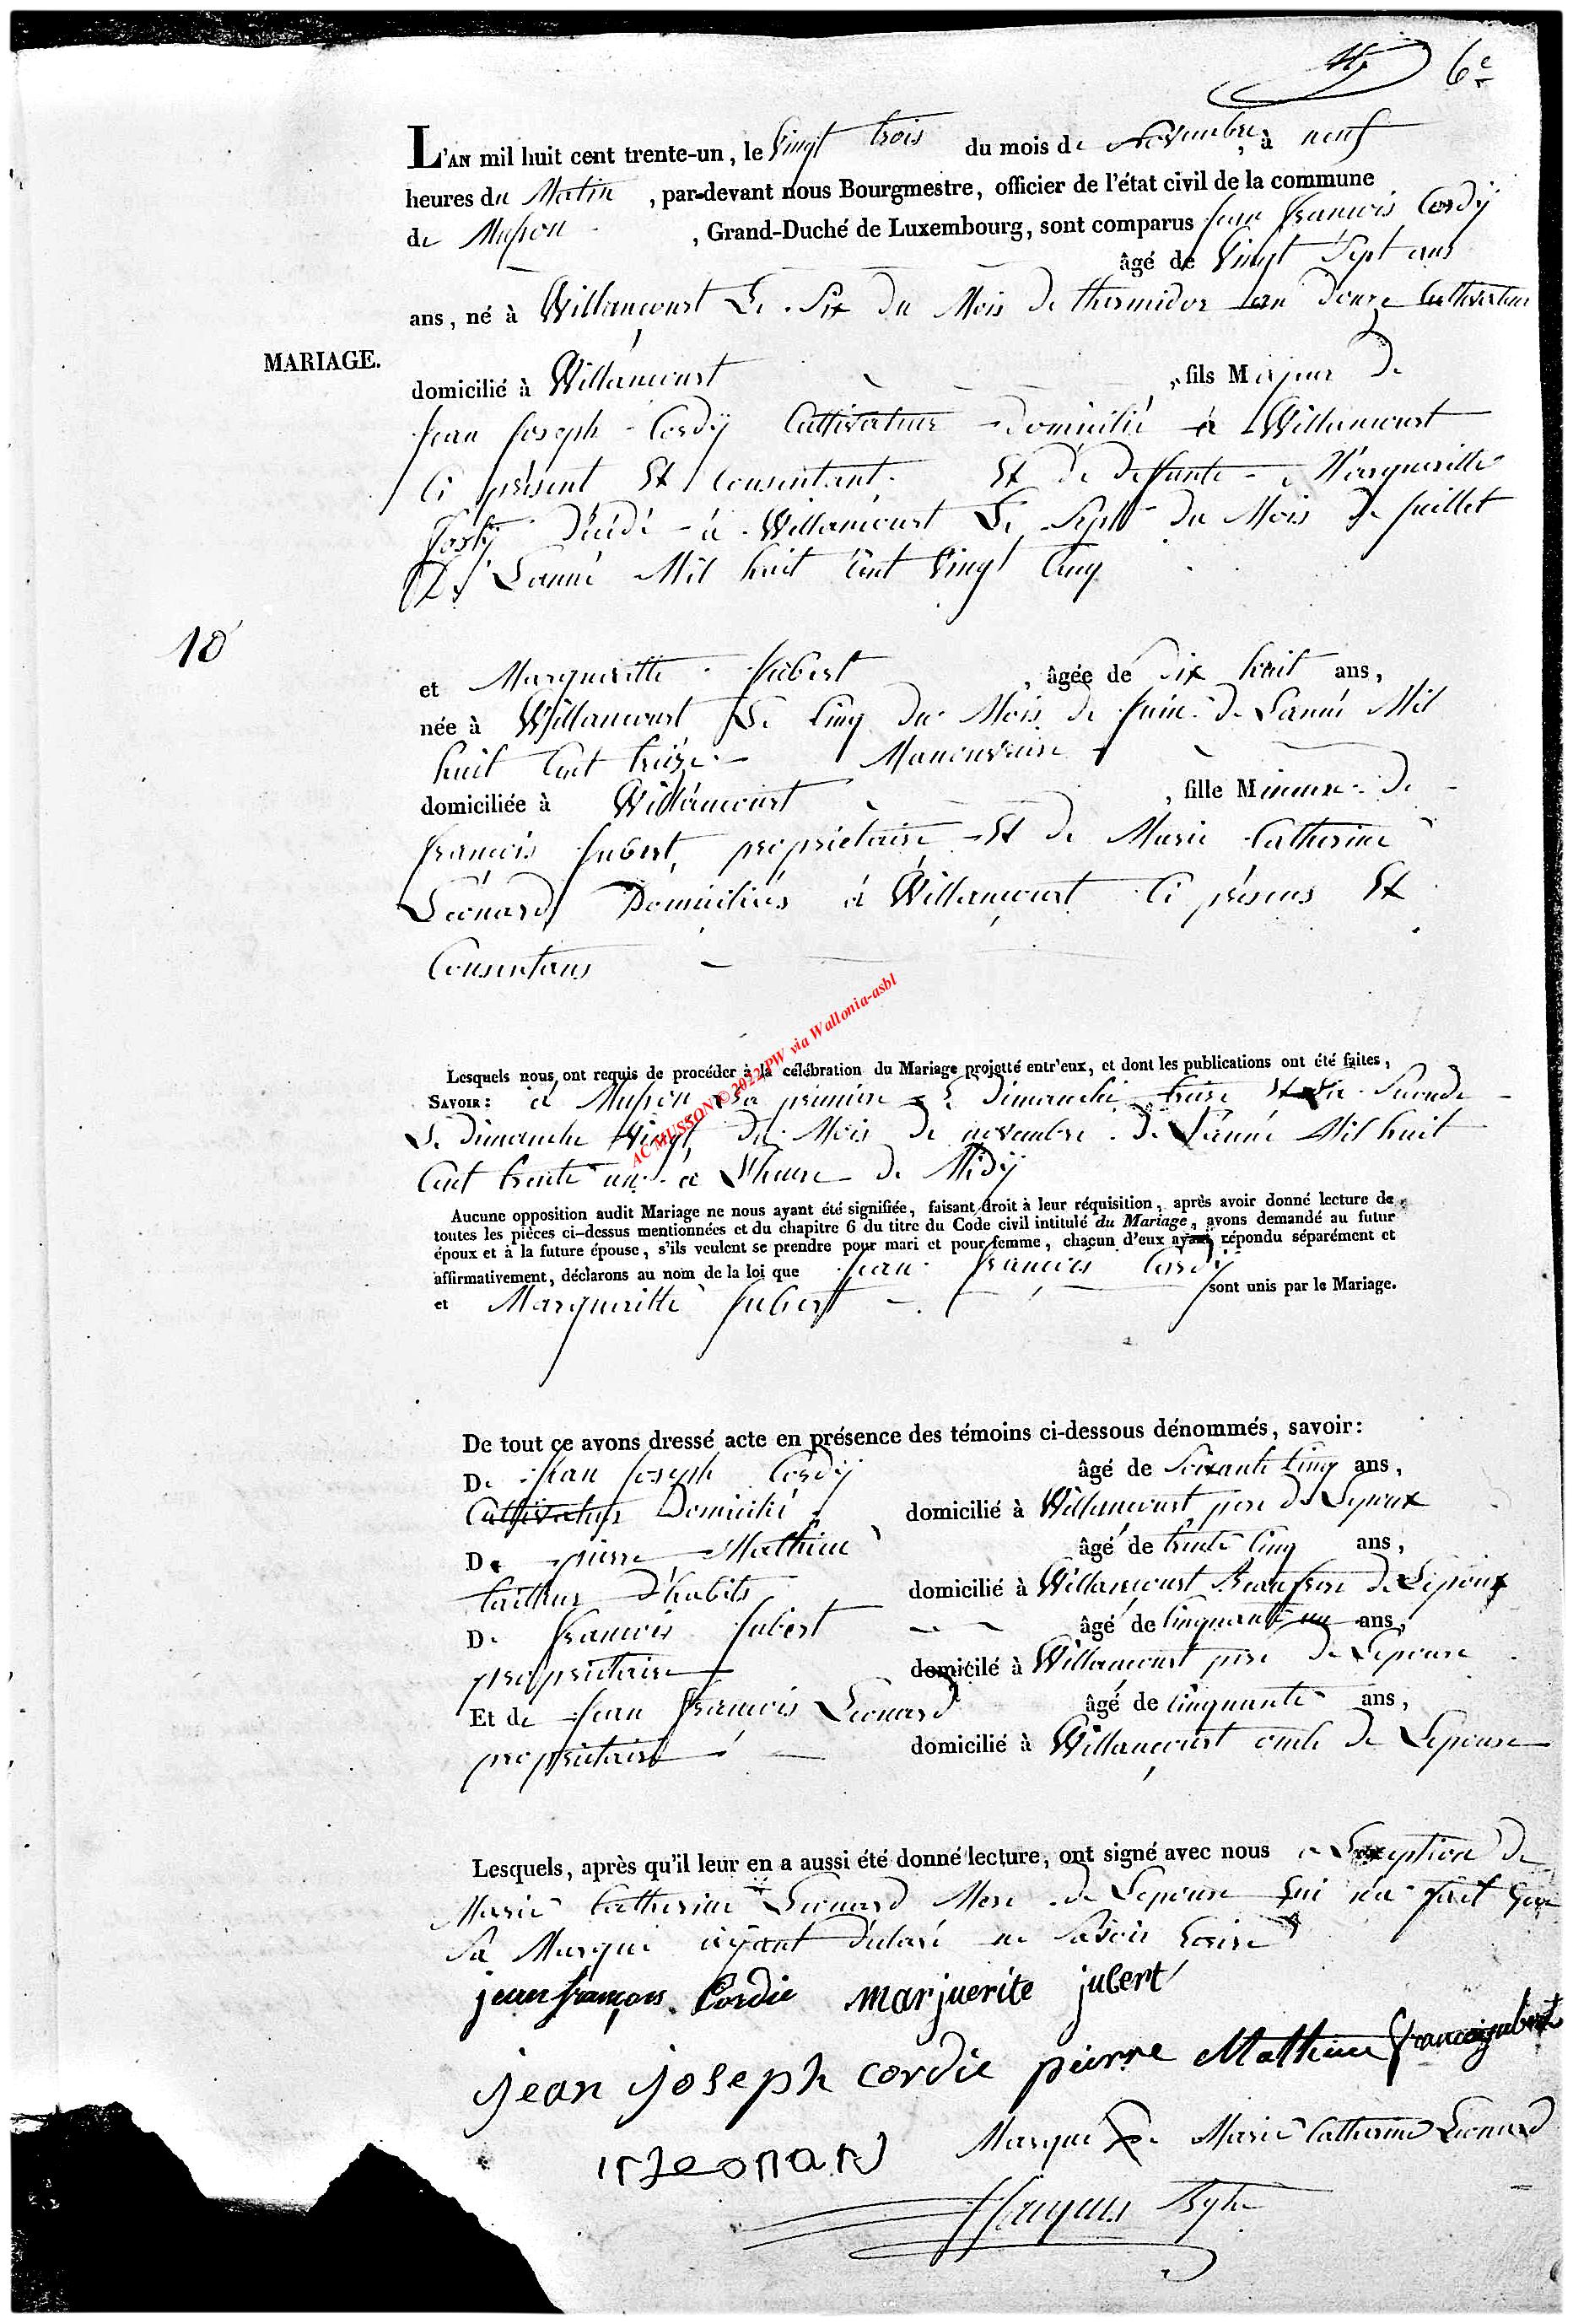 6e
L'AN mil huit cent trente-un, le Vingt trois du mois de Novembre, à neuf
heures du Matin, par-devant nous Bourgmestre, officier de l'état civil de la commune
de Musson, Grand-Duché de Luxembourg, sont comparus Jean François Cordÿ
âgé de Vingt Sept ans
ans, né à Willancourt Le Six Du Mois De thermidor an Douze Cultivateur
MARIAGE.
domicilié à Willancourt, fils Majeur De
Jean Joseph Cordÿ Cultivateur Domicilié à Willancourt
Ci présent Et Consentant. Et De Deffunte Margueritte
Décédé à Willancourt Le Sept Du Mois De Juillet
De L'année Mil huit Cent Vingt Cinq
10
et Margueritte Jubert, âgée de Dix huit ans,
née à Willancourt Le Cinq Du Mois De Juin De L'année Mil
huit Cent treize Manouvrière
domiciliée à Willancourt, fille Mineure De
François Jubert, propriétaire Et De Marie Catherine
Léonard Domiciliés à Willancourt Ci présens Et
Consentans
Lesquels nous ont requis de procéder à la célébration du Mariage projetté entr'eux, et dont les publications ont été faites,
SAVOIR: à Musson La première Le Dimanche treize Et La Seconde
Le Dimanche Vingt Du Mois De novembre De L'année Mil huit
Cent trente un à L'heure De Midÿ
AC MUSSON © 2022 PW via Wallonia-asbl
Aucune opposition audit Mariage ne nous ayant été signifiée, faisant droit à leur réquisition, après avoir donné lecture de
toutes les pièces ci-dessus mentionnées et du chapitre 6 du titre du Code civil intitulé du Mariage, avons demandé au futur
époux et à la future épouse, s'ils veulent se prendre pour mari et pour femme, chacun d'eux ayant répondu séparément et
affirmativement, déclarons au nom de la loi que Jean François Cordÿ
et Margueritte Jubert sont unis par le Mariage.
De tout ce avons dressé acte en présence des témoins ci-dessous dénommés, savoir:
De Jean Joseph Cordÿ âgé de Soixante Cinq ans,
Cultivateur Domicilié domicilié à Willancourt père De Lepoux
De pierre Mathieu âgé de trente Cinq ans,
tailleur D'habits domicilié à Willancourt Beaufrere De Lepoux
De François Jubert âgé de Cinquante un ans,
propriétaire domicilé à Willancourt père De Lepouse
Et de Jean François Léonard âgé de Cinquante ans,
propriétaire domicilié à Willancourt oncle De Lepouse
Lesquels, après qu'il leur en a aussi été donné lecture, ont signé avec nous a Lexeption De
Marie Catherine Léonard Mere De Lepouse qui n'a fait que
Sa Marque aÿant Déclaré ne Savoir Ecrire
jean françois Cordie marjuerite jubert
jean joseph cordie pierre Mathieu francoijubert
Marque De Marie Catherine Léonard